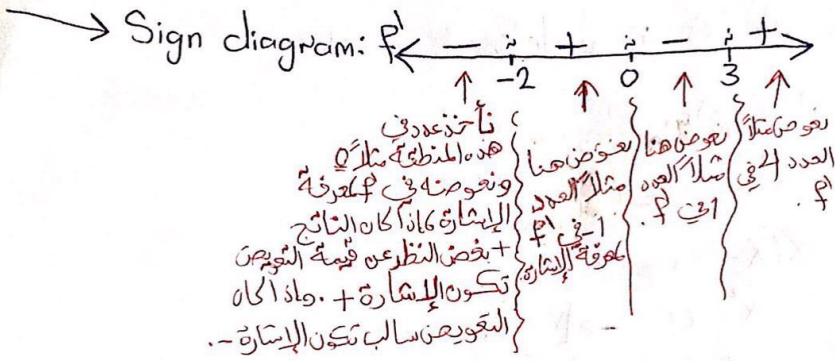 Sign diagram: f'
− + − +
-2 0 3
نأخذ عدد في
هذه المنطقة مثلاً
ونعوضه في f' لمعرفة
الإشارة فإذا كان الناتج
+ بغض النظر عن قيمة التعويض
تكون الإشارة + . وإذا كان
التعويض سالب تكون الإشارة - .
نعوض هنا
مثلاً العدد
-1 في f'
لمعرفة الإشارة
نعوض هنا
مثلاً العدد
1 في f' .
نعوض مثلاً
العدد 4 في
f' .